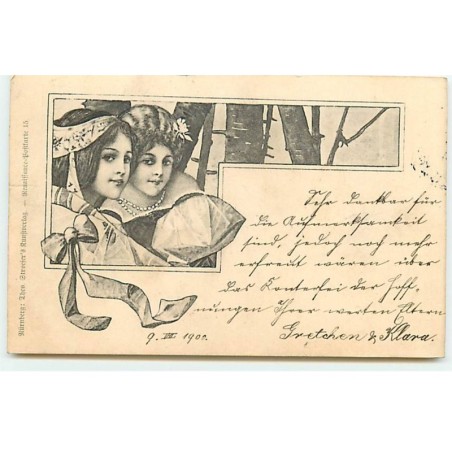 Nürnberg: Theo. Stroefer's Kunstverlag. — Künstliche-Postkarte 15
Sehr dankbar für
die Aufmerksamkeit
sind, jedoch noch mehr
erfreut wären über
das Konterfei der Hoff-
nungen Ihrer werten Eltern
Gretchen & Klara.
9. VII 1900.